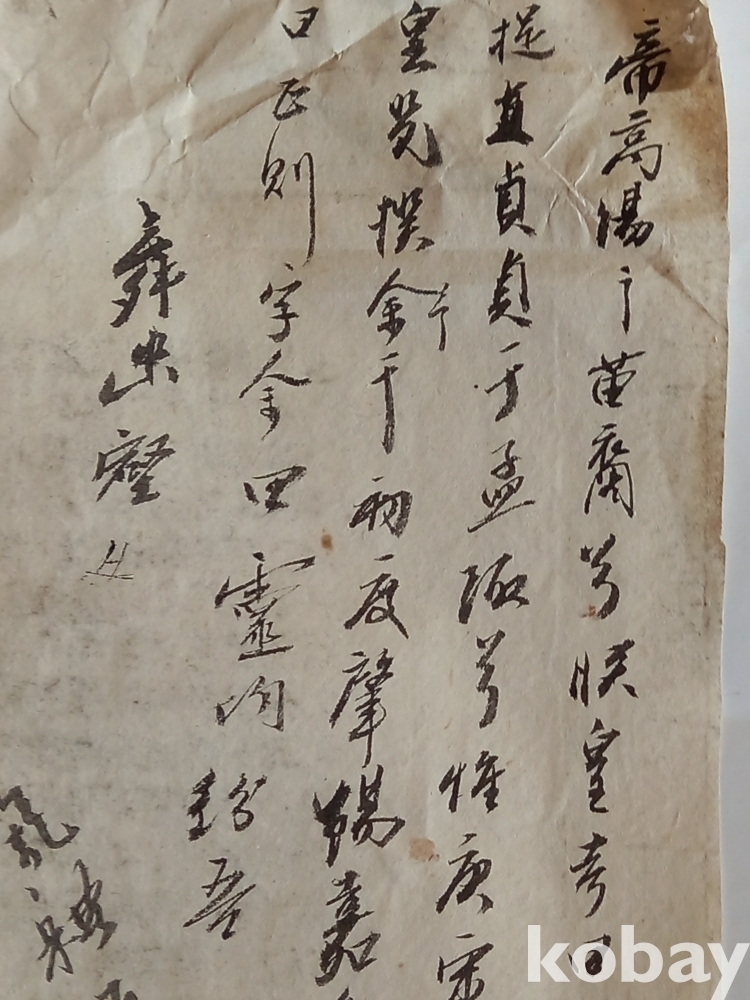 帝高陽之苗裔兮朕皇考曰
提直貞貞于孟陬兮惟庚寅
皇覽揆余于初度肇錫嘉
曰正則字余曰靈均紛吾
舞幽壑之
kobay